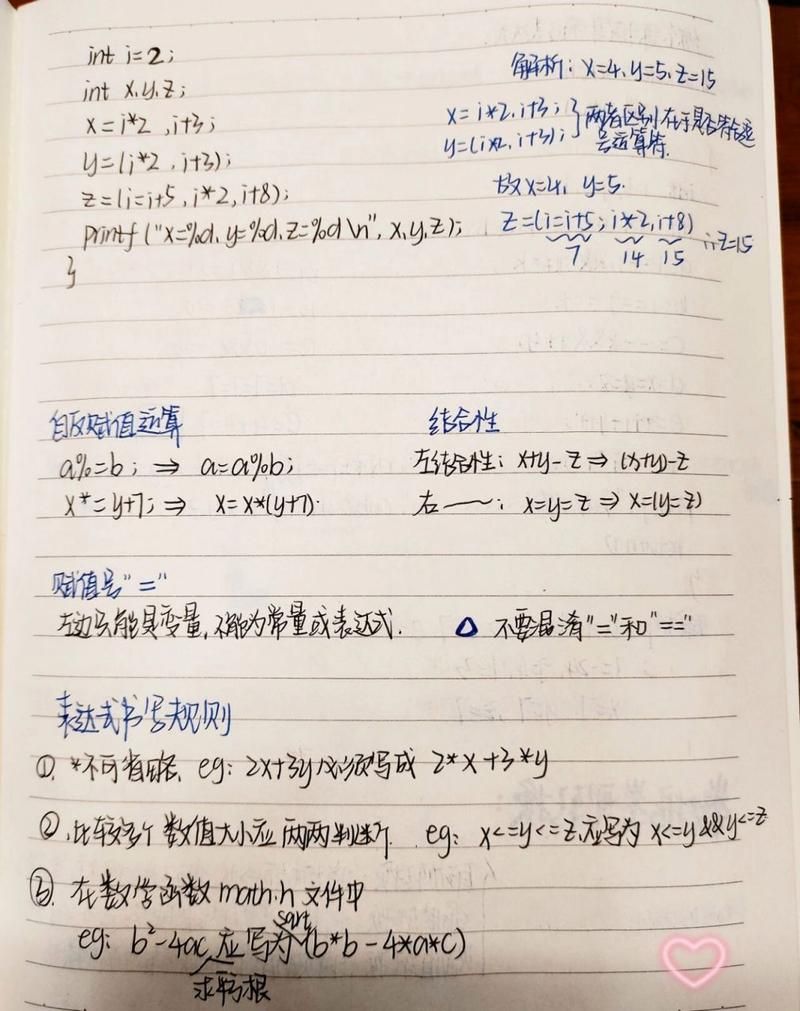 int i=2;
int x,y,z;
x=i*2 ,i+3;
y=(i*2 ,i+3);
z=(i=i+5 ,i*2,i+8);
printf("x=%d, y=%d,z=%d \n", x,y,z);
}
解析: x=4,y=5,z=15
x=i*2,i+3;
y=(i*2,i+3);
} 两者区别在于是否符合逗
号运算符.
故x=4, y=5.
z=(i=i+5; i*2,i+8)
7 14 15 ∴z=15
自反赋值运算
a%=b; ⇒ a=a%b;
x*=y+7; ⇒ x=x*(y+7).
结合性
左结合性: x+y-z ⇒ (x+y)-z
右——: x=y=z ⇒ x=(y=z)
赋值号"="
左边只能是变量,不能为常量或表达式.
△ 不要混淆"="和"=="
表达式书写规则
①. *不可省略、eg: 2x+3y必须写成 2*x+3*y
②.比较多个数值大小应两两判断. eg: x<=y<=z,应写为 x<=y&&y<=z
③. 在数学函数math.h文件中
eg: b²-4ac 应写为sqrt(b*b-4*a*c)
求平方根